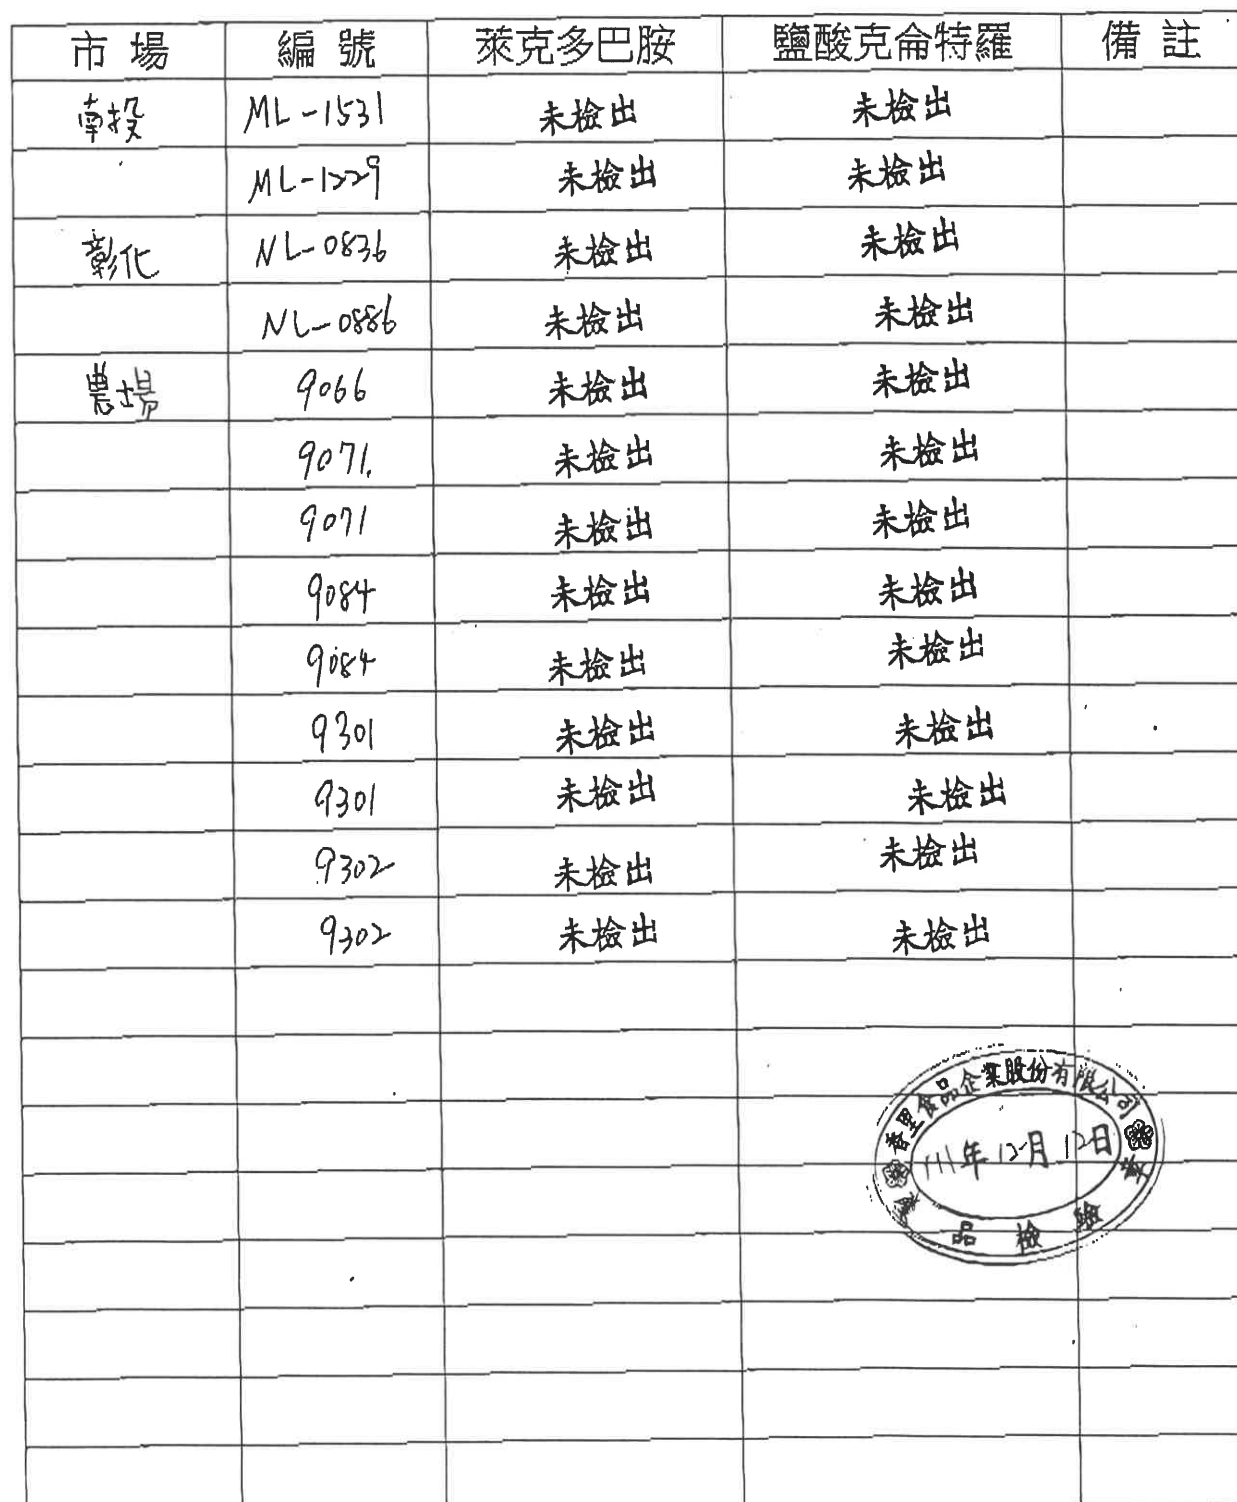 市場 編號 萊克多巴胺 鹽酸克侖特羅 備註
南投 ML-1531 未檢出 未檢出
ML-1229 未檢出 未檢出
彰化 NL-0836 未檢出 未檢出
NL-0886 未檢出 未檢出
農場 9066 未檢出 未檢出
9071. 未檢出 未檢出
9071 未檢出 未檢出
9084 未檢出 未檢出
9084 未檢出 未檢出
9301 未檢出 未檢出
9301 未檢出 未檢出
9302 未檢出 未檢出
9302 未檢出 未檢出
香里食品企業股份有限公司
111年12月12日
品檢驗章